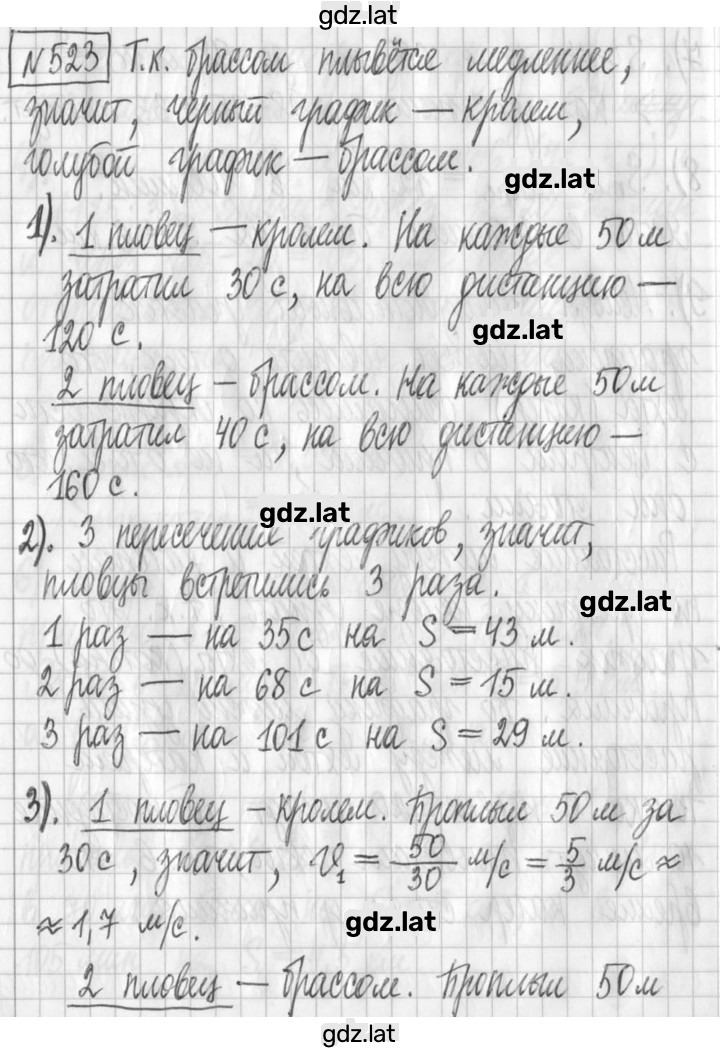 gdz.lat
№523 Т.к. брассом плывётся медленнее,
значит, чёрный график — кролем,
голубой график — брассом.
gdz.lat
1). 1 пловец — кролем. На каждые 50 м
затратил 30 с, на всю дистанцию —
120 с.
gdz.lat
2 пловец — брассом. На каждые 50 м
затратил 40 с, на всю дистанцию —
160 с.
gdz.lat
2). 3 пересечения графиков, значит,
пловцы встретились 3 раза.
gdz.lat
1 раз — на 35 с на S = 43 м.
2 раз — на 68 с на S = 15 м.
3 раз — на 101 с на S = 29 м.
3). 1 пловец – кролем. Проплыл 50 м за
30 с, значит, v₁ = 50/30 м/с = 5/3 м/с ≈
≈ 1,7 м/с.
gdz.lat
2 пловец — брассом. Проплыл 50 м
gdz.lat